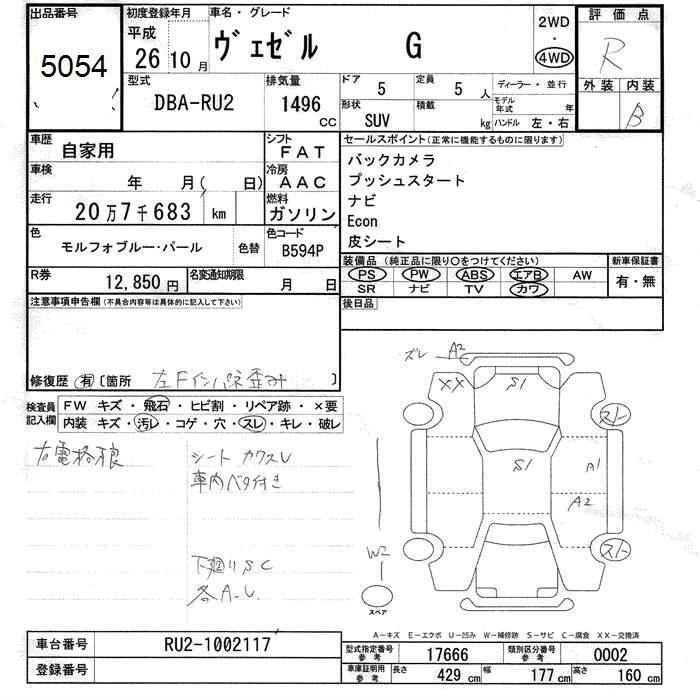 出品番号 初度登録年月 車名・グレード 2WD 評価点
5054 平成 26 10月 ヴェゼル G 4WD R
型式 排気量 ドア 5 定員 5人 ディーラー・並行 外装 内装
DBA-RU2 1496cc 形状 SUV 積載 kg モデル年式 年 ハンドル 左・右 B
車歴 自家用 シフト FAT セールスポイント(正常に機能するものに限ります)
車検 年 月( 日) 冷房 AAC バックカメラ
プッシュスタート
走行 20万7千683 km 燃料 ガソリン ナビ
Econ
色 モルフォブルー・パール 色替 色コード B594P 皮シート
装備品(純正品に限り○をつけてください) 新車保証書
R券 12,850円 名変通知期限 月 日 PS PW ABS エアB AW 有・無
SR ナビ TV カワ
注意事項申告欄(不具合内容等は具体的に記入して下さい) 後日品
修復歴 有 〔箇所 左Fインパネ歪み 〕
ズレ A2
XX S1
検査員記入欄 FW キズ・飛石・ヒビ割・リペア跡・×要
内装 キズ・汚レ・コゲ・穴・スレ・キレ・破レ
右電格狼 シート カワスレ
車内ベタ付き
S1 A1
A2
W2
下廻りSC
各A-U
スペア
A-キズ E-エクボ U-凹み W-補修跡 S-サビ C-腐食 XX-交換済
車台番号 RU2-1002117 型式指定番号 参考 17666 類別区分番号 参考 0002
登録番号 車庫証明用 参考 長さ 429 cm 幅 177 cm 高さ 160 cm